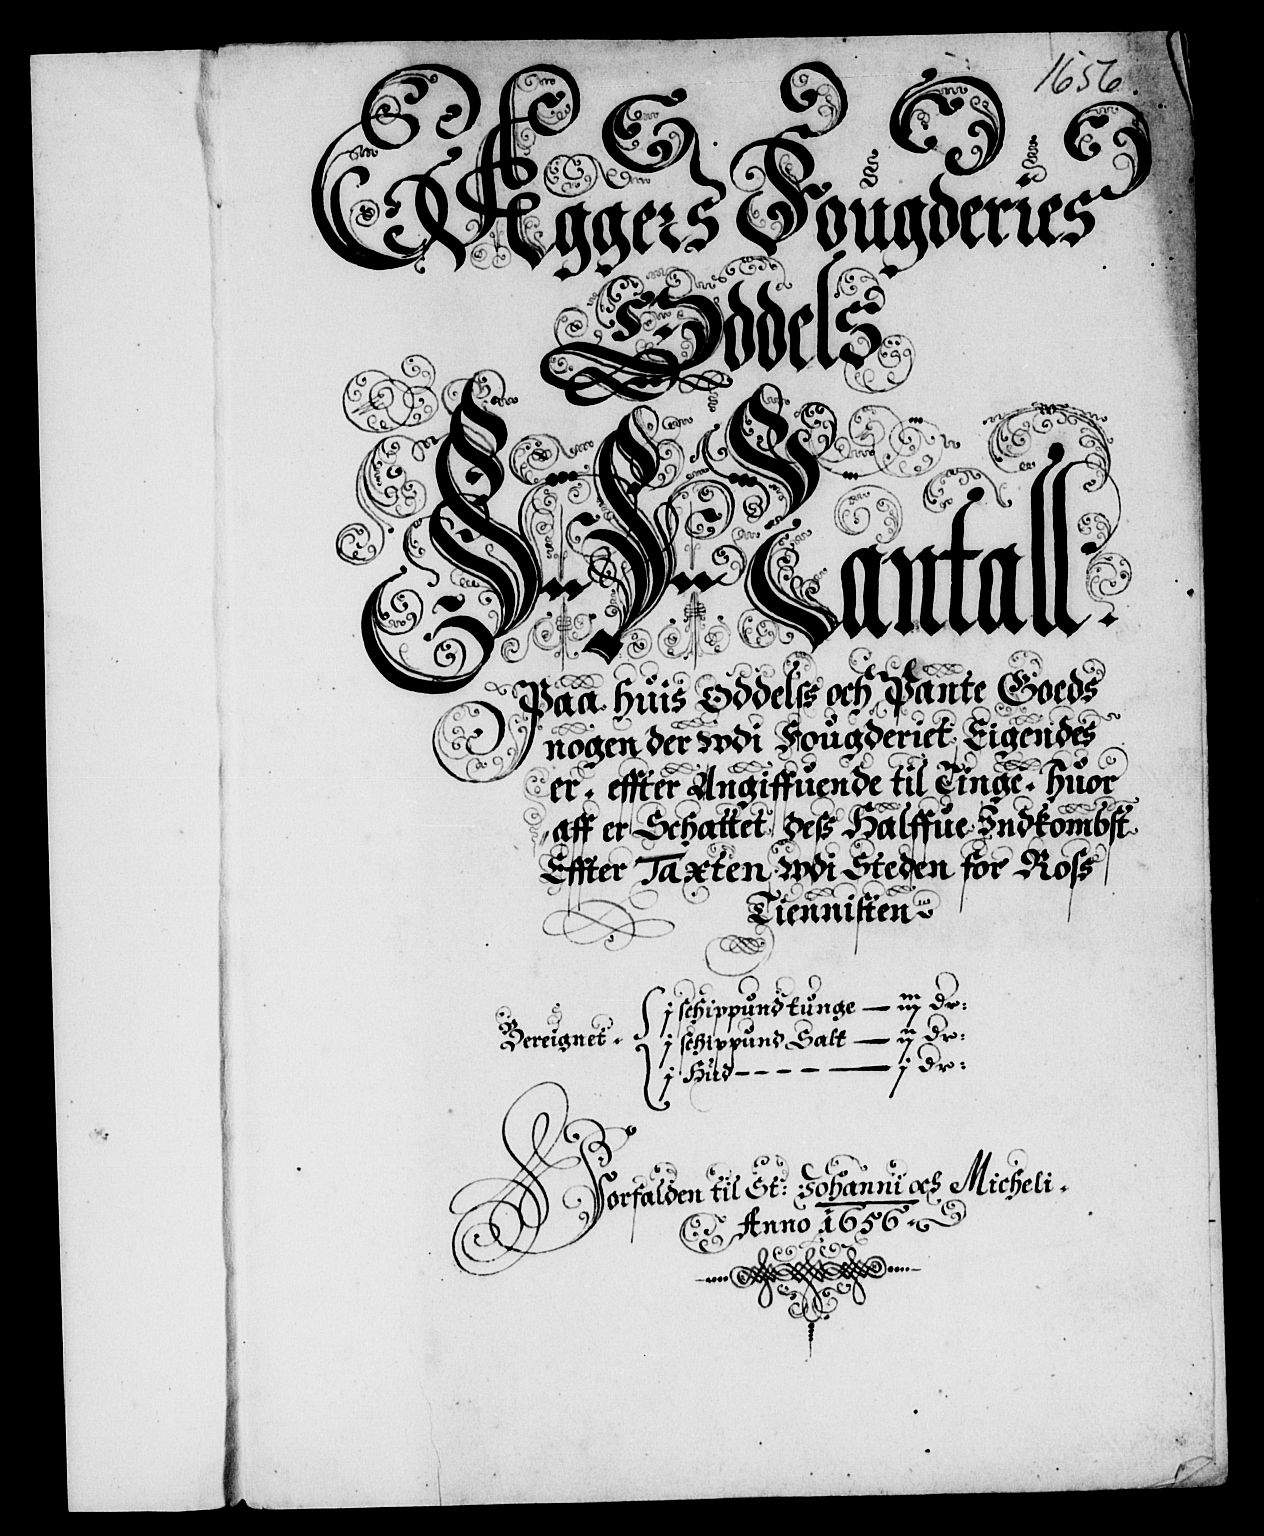 1656.
Aggers Fougderies
Oddels
Mantall.
Paa huis Oddelss och Pante Goeds
nogen der wdi Fougderiet Eigendes
er, effter Angiffuende til Tinge, huor
aff er Schattet dess Halffue Indkombst
Effter Taxten wdi Steden for Ross
Tiennisten
j schippund tunge — iij dr:
Bereignet. j schippund Salt — ij dr:
j Hud - - - - — j dr:
Forfalden til St: Johanni och Micheli.
Anno 1656.